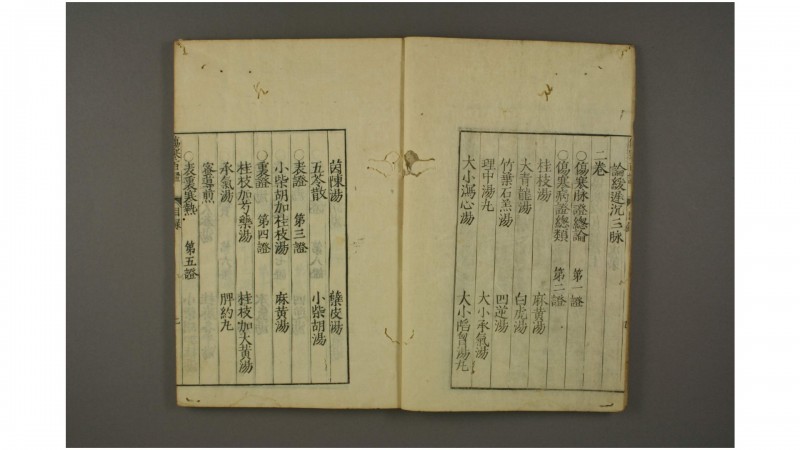 論緩遲沉三脉
二卷
○傷寒脉證總論 第一證
○傷寒病證總類 第二證
桂枝湯 麻黃湯
大青龍湯 白虎湯
竹葉石羔湯 四逆湯
理中湯丸 大小承氣湯
大小瀉心湯 大小陷胷湯丸
茵陳湯 蘗皮湯
五苓散 小柴胡湯
○表證 第三證
小柴胡加桂枝湯 麻黃湯
○裏證 第四證
桂枝加芍藥湯 桂枝加大黃湯
承氣湯 脾約丸
蜜導煎
○表裏寒熱 第五證
目錄